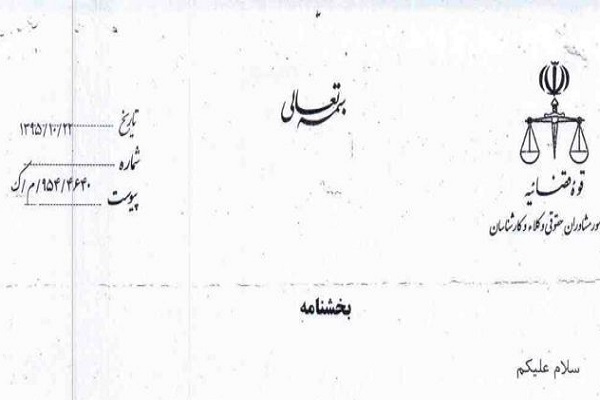 بسمه تعالی
قوه قضائیه
امور مشاوران حقوقی وکلاء و کارشناسان
تاریخ ۱۳۹۵/۱۰/۲۲
شماره
۹۵۴/۴۶۴۰/م/ک
پیوست
بخشنامه
سلام علیکم